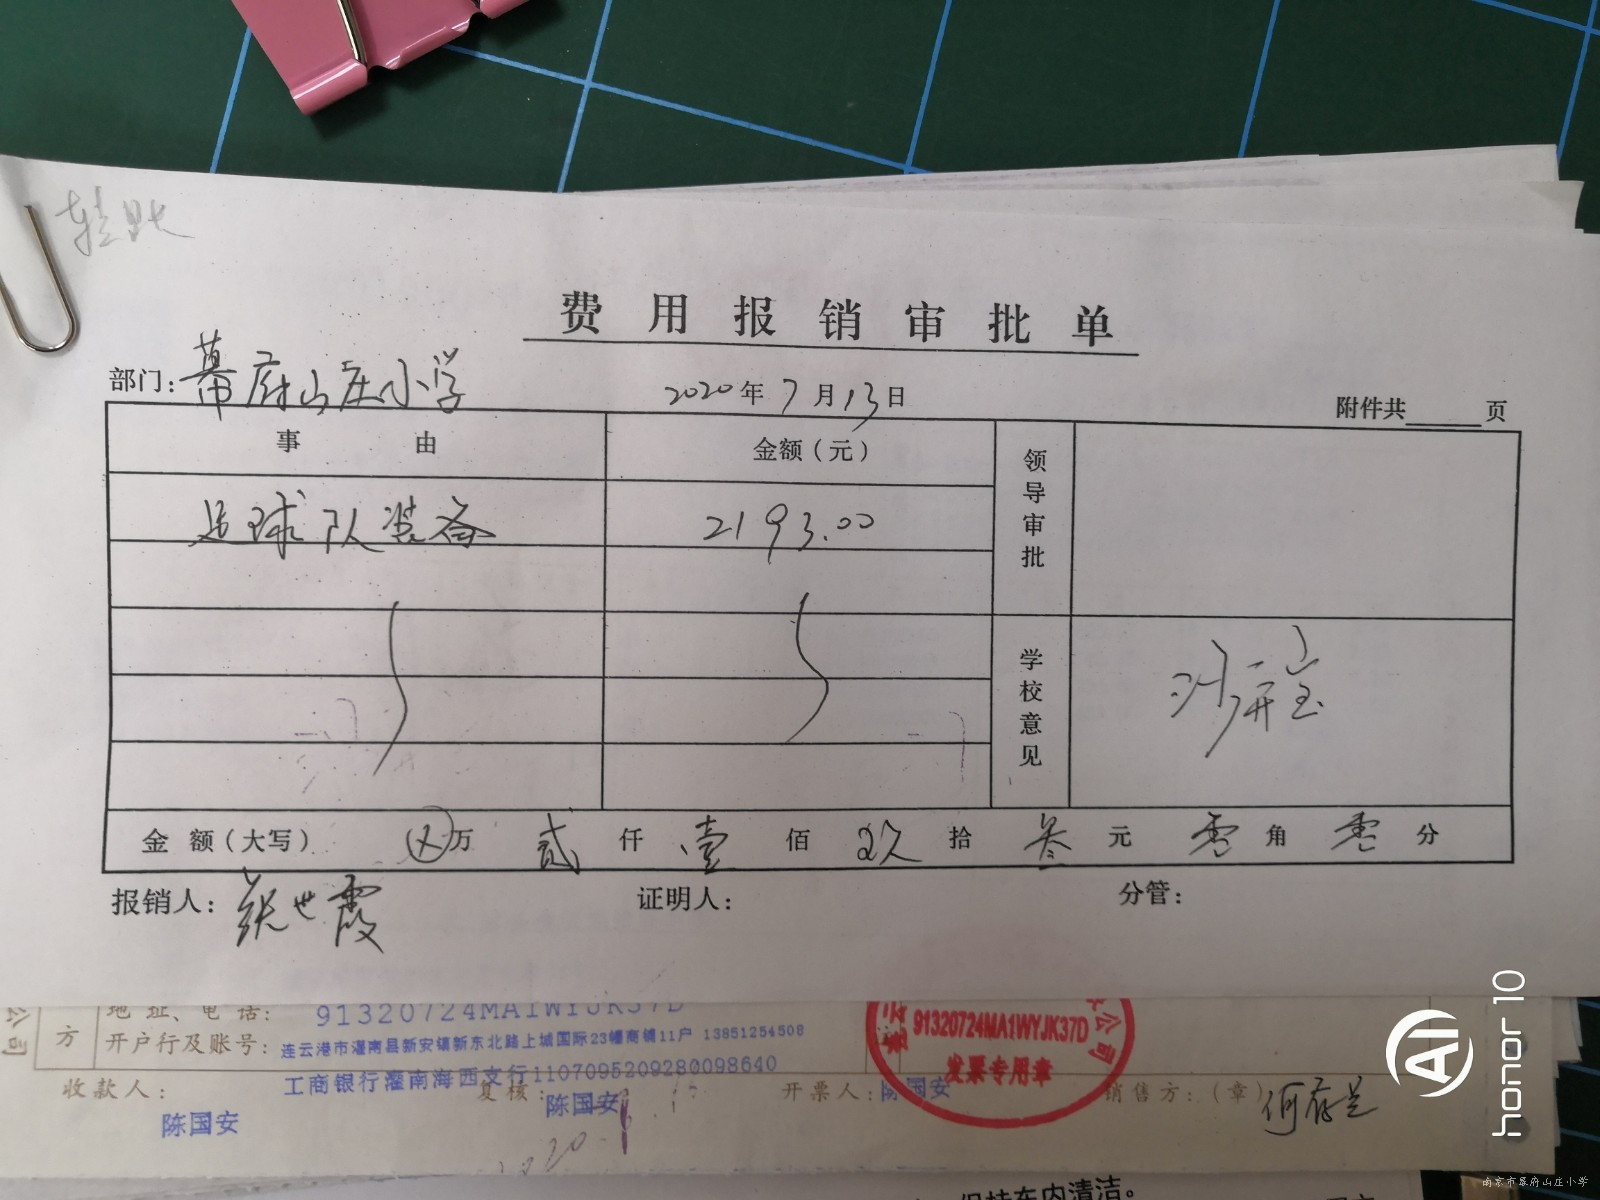 转账
费用报销审批单
部门：幕府山庄小学 2020年7月13日 附件共____页
事由 金额（元） 领导审批
足球队装备 2193.00
学校意见
金额（大写） ⊗万 贰仟 壹佰 玖拾 叁元 零角 零分
报销人：张世霞 证明人： 分管：
公司
方
地址、电话： 91320724MA1WYJK37D
开户行及账号： 连云港市灌南县新安镇新东北路上城国际23幢商铺11户 13851254508
工商银行灌南海西支行1107095209280098640
91320724MA1WYJK37D
发票专用章
收款人： 陈国安 复核： 陈国安 开票人： 陈国安 销售方：（章）
保持车内清洁。
AI
honor 10
南京市幕府山庄小学